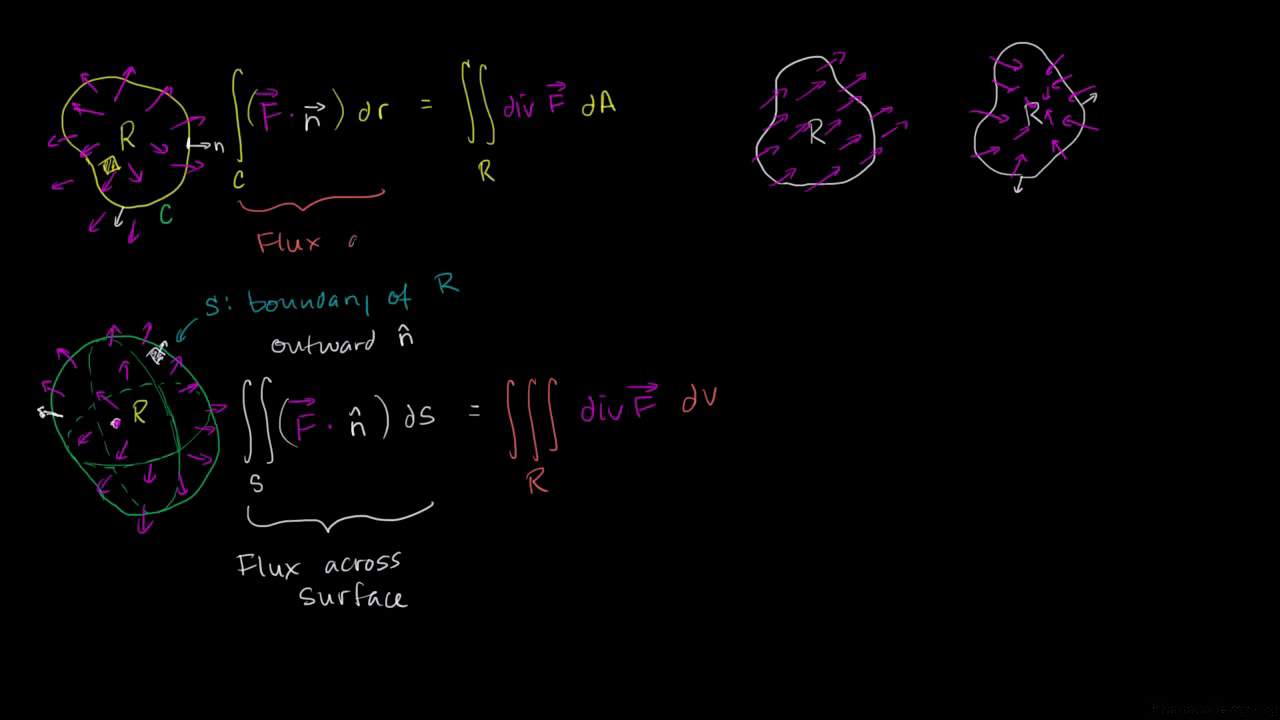 R
n
C
∫_C (F⃗ · n⃗) dr = ∬_R div F⃗ dA
Flux
R
R
S: boundary of R
outward n̂
R
∬_S (F⃗ · n̂) dS = ∭_R div F⃗ dV
Flux across
surface